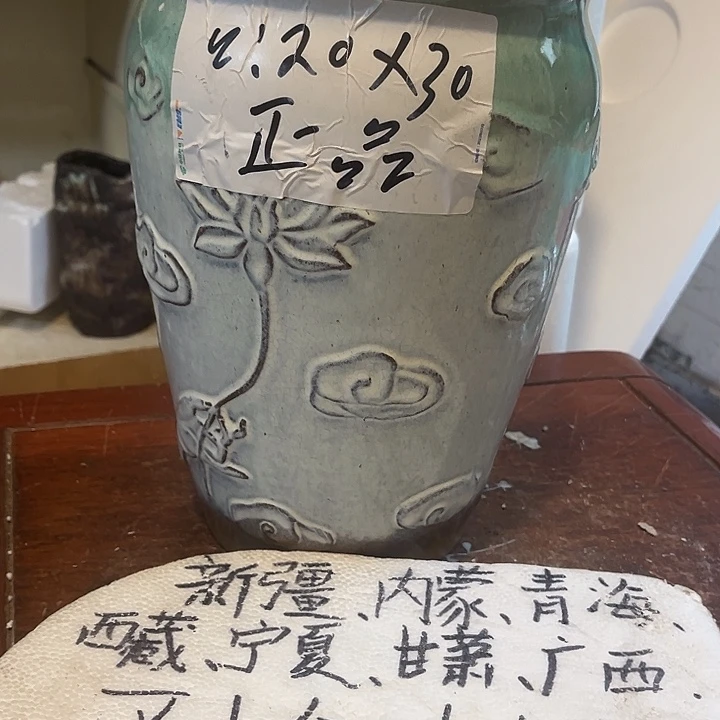 4:20X30
正品
新疆、内蒙、青海、
西藏、宁夏、甘肃、广西、